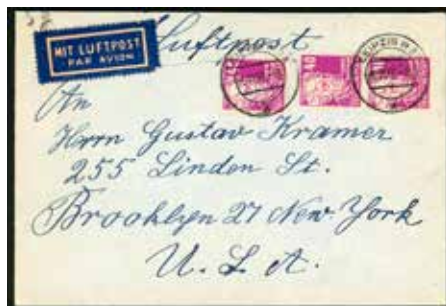 MIT LUFTPOST
PAR AVION
Luftpost
LEIPZIG
40
An
Herrn Gustav Kramer
255 Linden St.
Brooklyn 27 New York
U. S. A.